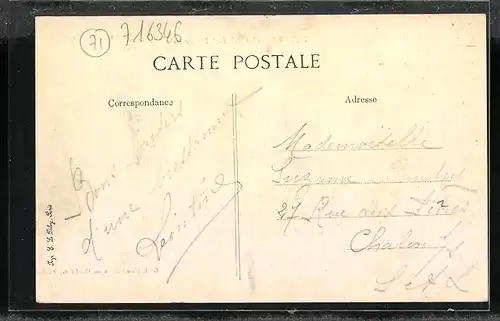 71
716346
CARTE POSTALE
Correspondance
Adresse
Bons baisers
d'une
Léontine
Mademoiselle
Suzanne
27 Rue aux Fèvres
Chalon s/s
S et L